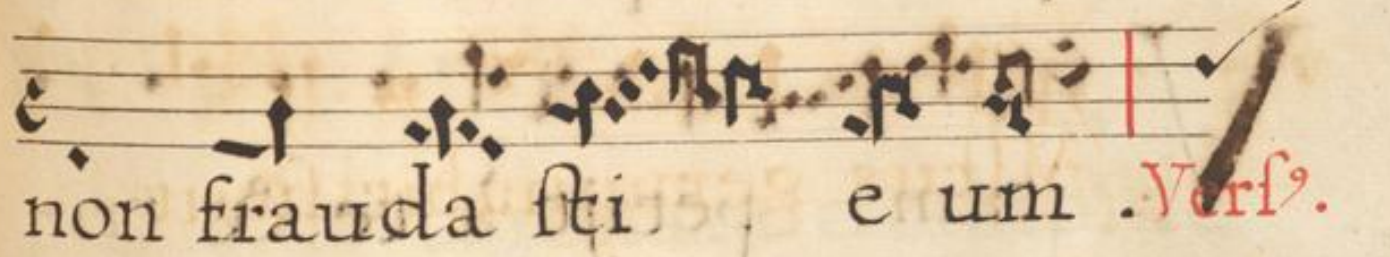 non frauda sti e um . Versꝰ.